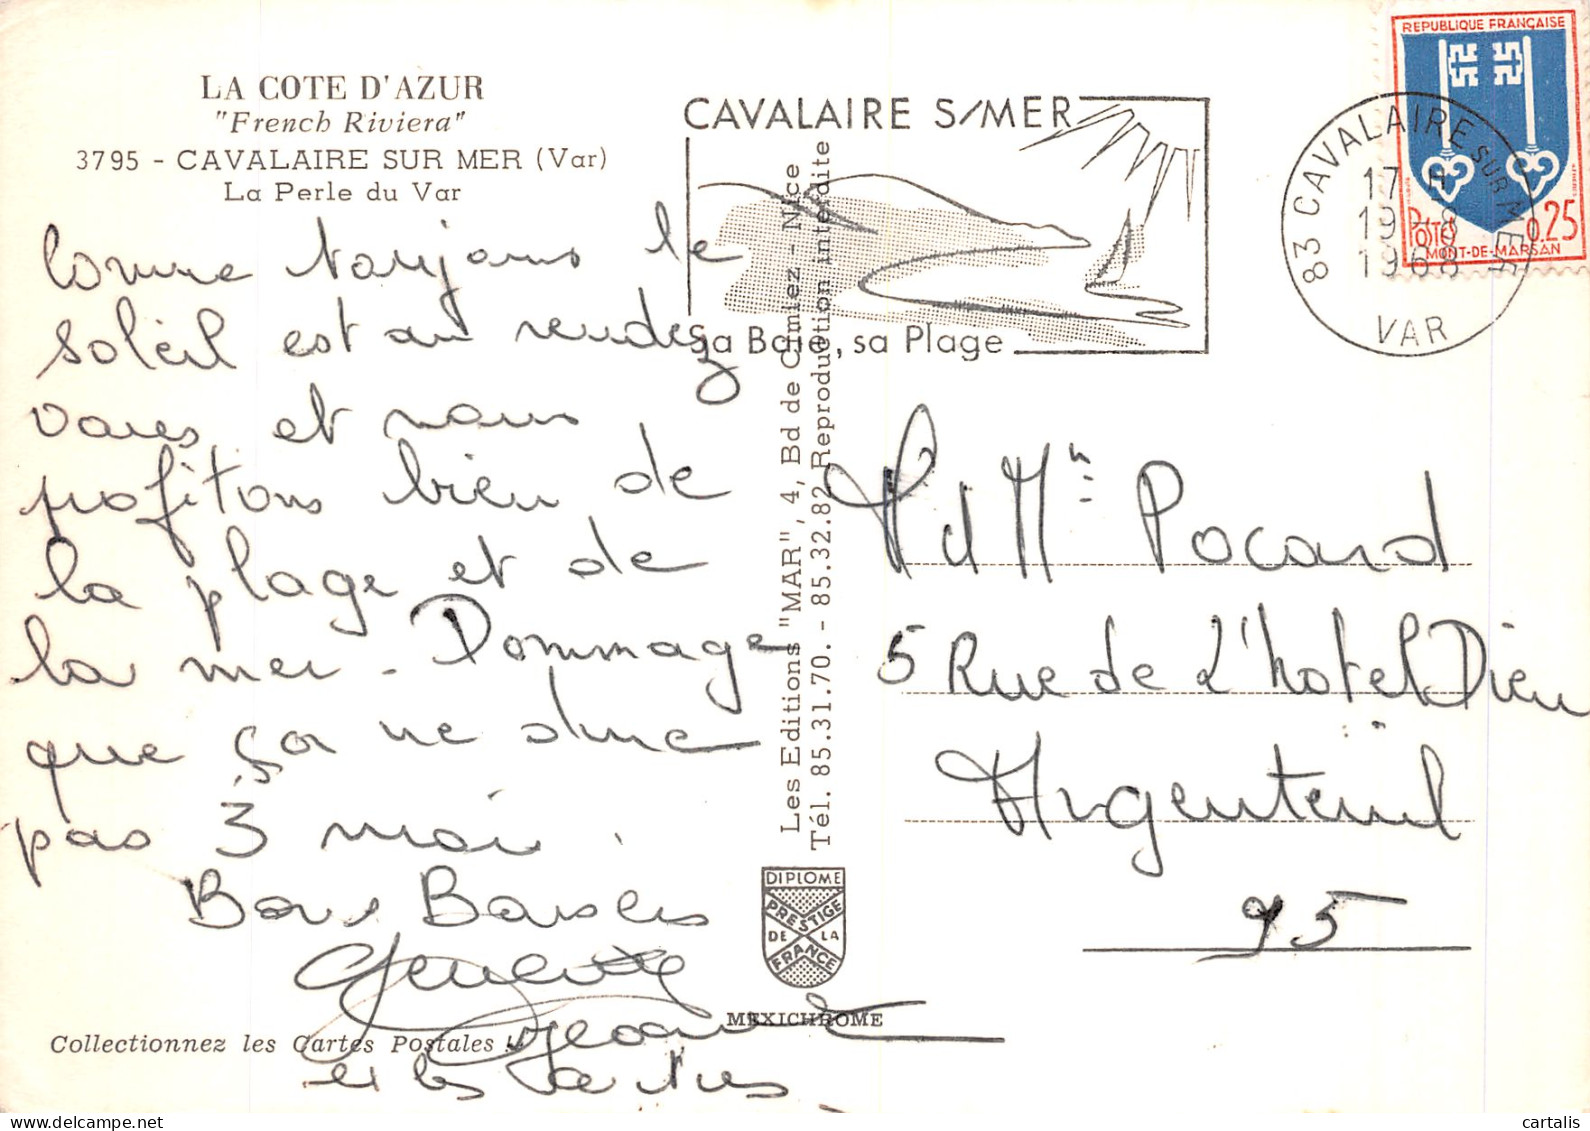 LA COTE D'AZUR
"French Riviera"
3795 - CAVALAIRE SUR MER (Var)
La Perle du Var
Comme toujours le
soleil est au rendez
vous et nous
profitons bien de
la plage et de
la mer. Dommage
que ça ne dure
pas 3 moi.
Bons Baisers
Jeanne
et les
Collectionnez les Cartes Postales !
CAVALAIRE S/MER
Sa Baie, sa Plage
83 CAVALAIRE SUR MER
17 H
19 - 8
1968
VAR
REPUBLIQUE FRANÇAISE
POSTES 0,25
MONT-DE-MARSAN
Les Editions "MAR", 4, Bd de Cimiez - Nice
Tél. 85.31.70. - 85.32.82 Reproduction interdite
DIPLOME
PRESTIGE
DE LA
FRANCE
MEXICHROME
M et Mme Pocard
5 Rue de L'hotel Dieu
Argenteuil
95
cartalis